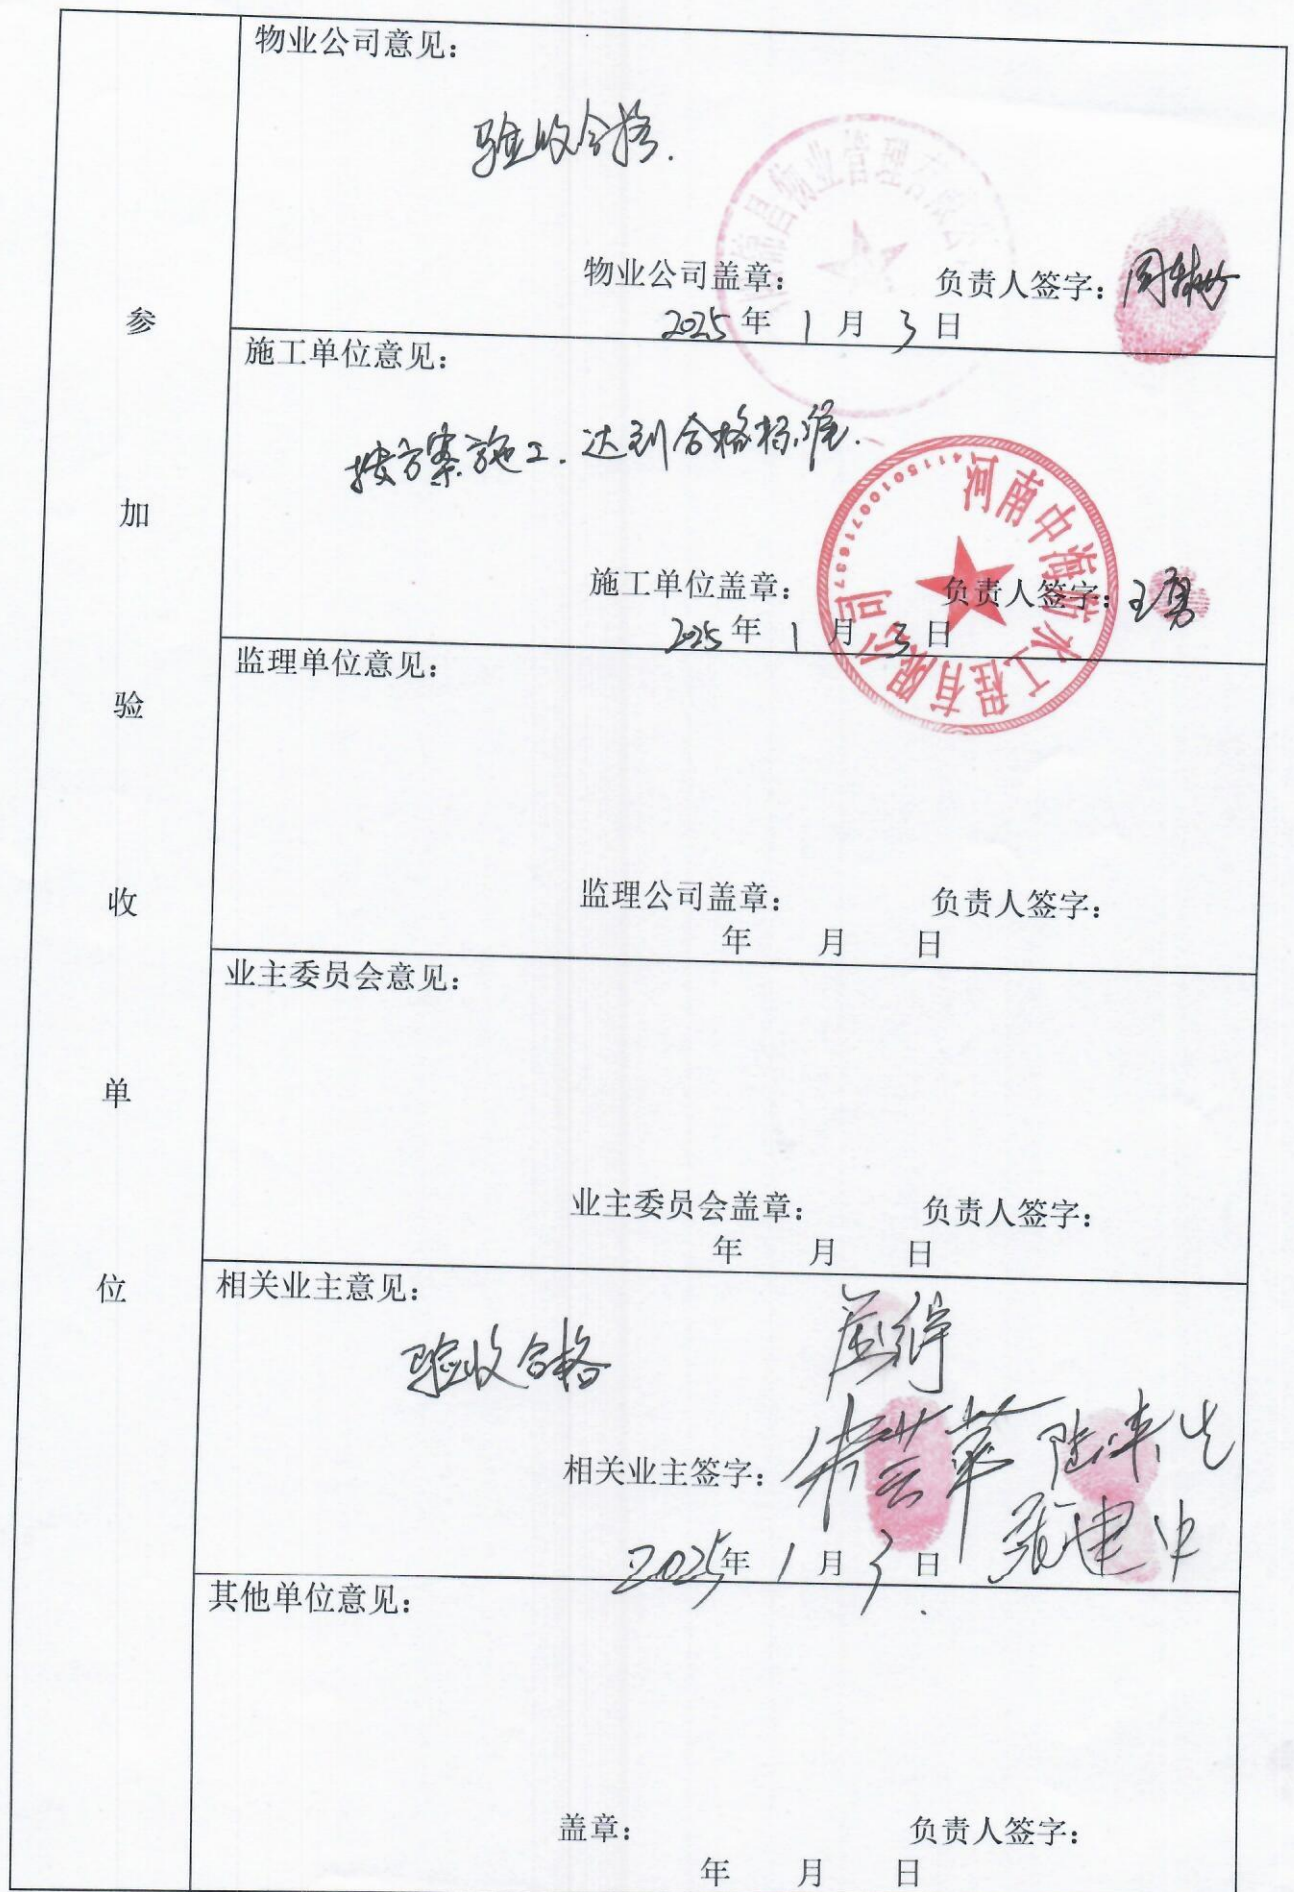 参加验收单位
物业公司意见：
验收合格.
物业管理有限公
物业公司盖章： 负责人签字：
2025年 1月 3日
施工单位意见：
按方案施工.达到合格标准.
河南中海防水工程有限公司
4115010071637
施工单位盖章： 负责人签字：王勇
2025年 1月 3日
监理单位意见：
监理公司盖章： 负责人签字：
年 月 日
业主委员会意见：
业主委员会盖章： 负责人签字：
年 月 日
相关业主意见：
验收合格
相关业主签字：
张建中
2025年 1月 3日
其他单位意见：
盖章： 负责人签字：
年 月 日